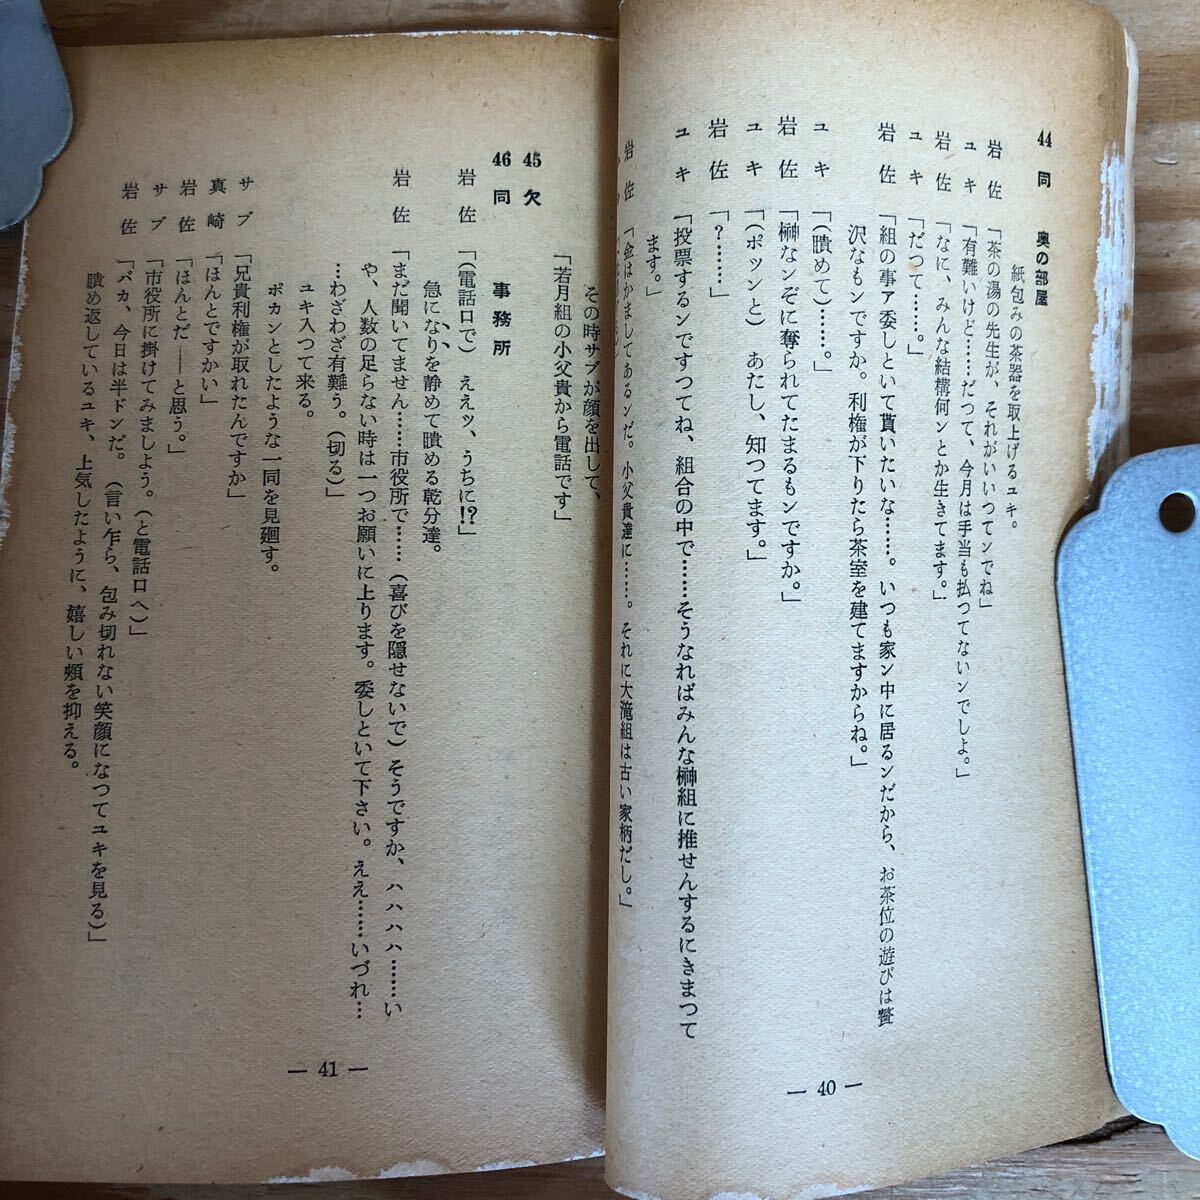 44 同 奥の部屋
紙包みの茶器を取上げるユキ。
岩佐「茶の湯の先生が、それがいいつてンでね」
ユキ「有難いけど……だつて、今月は手当も払つてないンでしよ。」
岩佐「なに、みんな結構何ンとか生きてます。」
ユキ「だつて……。」
岩佐「組の事ァ委しといて貰いたいな……。いつも家ン中に居るンだから、お茶位の遊びは贅
沢なもンですか。利権が下りたら茶室を建てますからね。」
ユキ「(瞶めて)……。」
岩佐「榊なンぞに奪られてたまるもンですか。」
ユキ「(ポツンと) あたし、知つてます。」
岩佐「?……」
ユキ「投票するンですつてね、組合の中で……そうなればみんな榊組に推せんするにきまつて
ます。」
岩佐「金はかましてあるンだ。小父貴達に……。それに大滝組は古い家柄だし。」
— 40 —
その時サブが顔を出して、
「若月組の小父貴から電話です」
45 欠
46 同 事務所
岩佐「(電話口で) ええッ、うちに!?」
急になりを静めて瞶める乾分達。
岩佐「まだ聞いてません……市役所で……(喜びを隠せないで)そうですか、ハハハハ……い
や、人数の足らない時は一つお願いに上ります。委しといて下さい。ええ……いづれ…
…わざわざ有難う。(切る)」
ユキ入つて来る。
ポカンとしたような一同を見廻す。
サブ「兄貴利権が取れたんですか」
真崎「ほんとですかい」
岩佐「ほんとだ——と思う。」
サブ「市役所に掛けてみましよう。(と電話口へ)」
岩佐「バカ、今日は半ドンだ。 (言い乍ら、包み切れない笑顔になつてユキを見る)」
瞶め返しているユキ、上気したように、嬉しい頬を抑える。
— 41 —